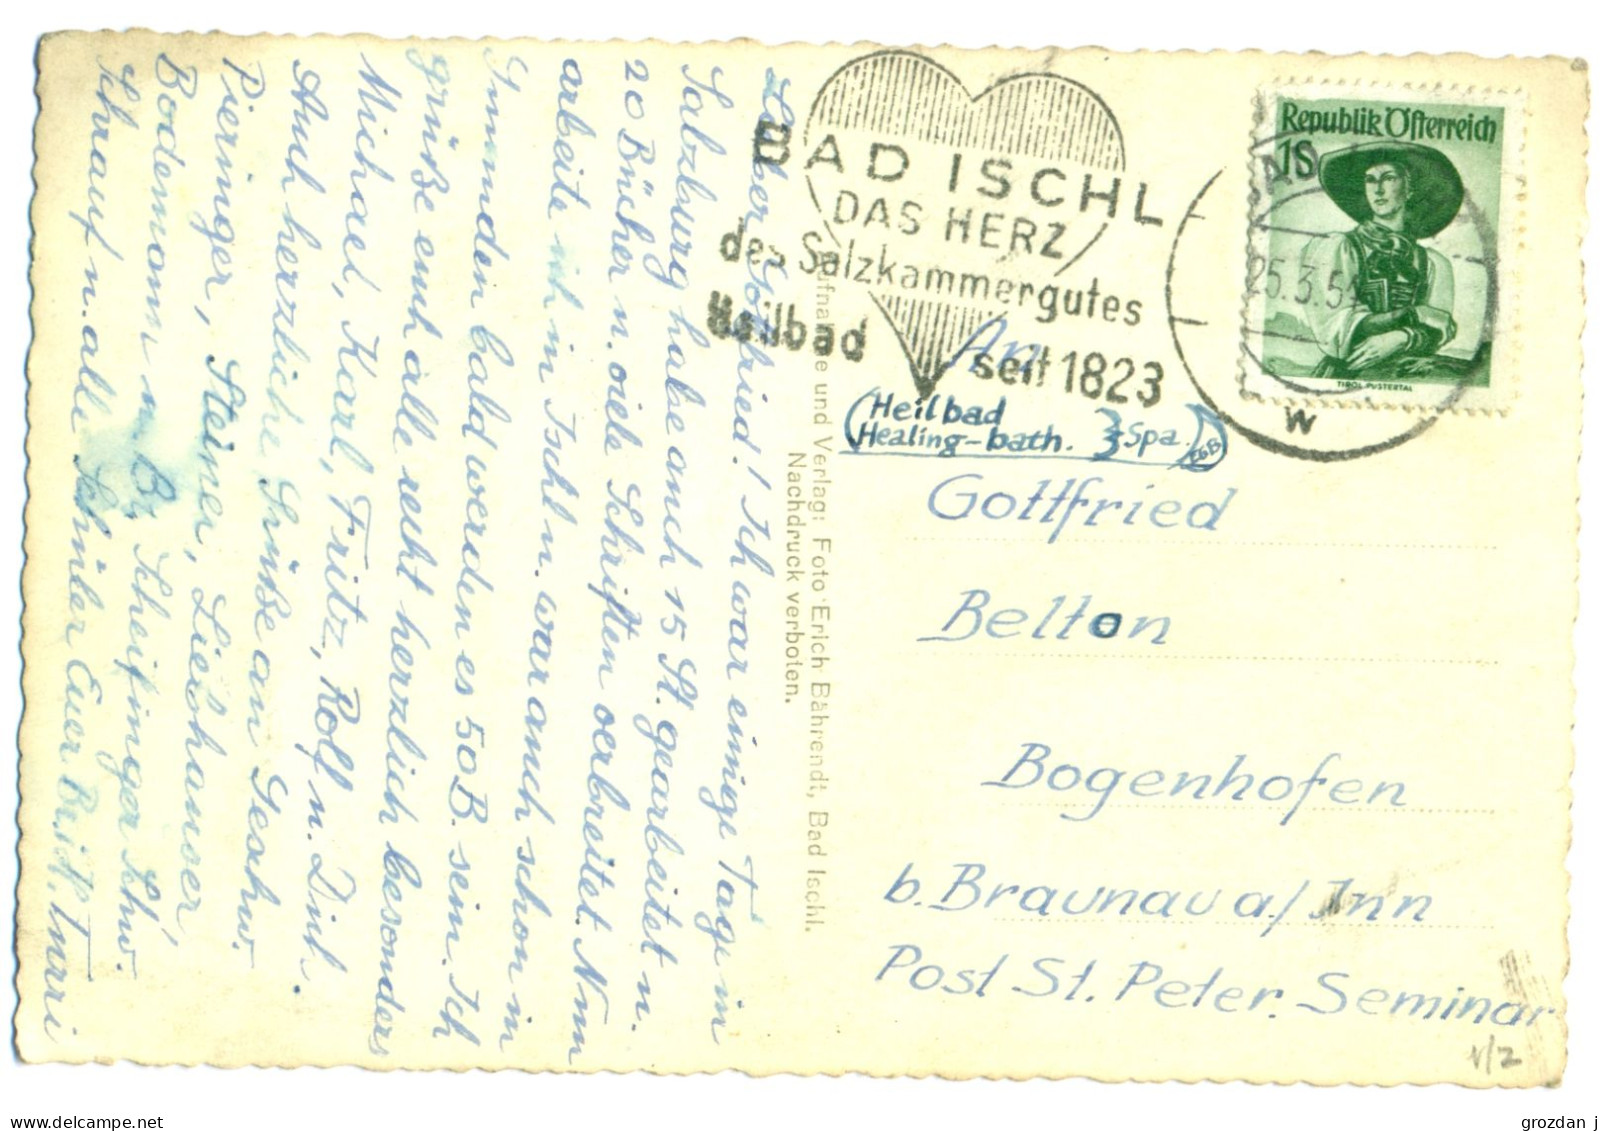 Lieber Gottfried! Ich war einige Tage in
Salzburg habe auch 15 St. gearbeitet u.
20 Bücher u. viele Schriften verbreitet. Nun
arbeite ich in Ischl u. war auch schon in
Gmunden bald werden es 50 B. sein. Ich
grüße euch alle recht herzlich besonders
Michael, Karl, Fritz, Rolf u. Dint.
Auch herzliche Grüße an Geschw.
Pieringer, Steiner, Lieshauser,
Bodemann u. Br. Scheifinger Schw.
Schrauf u. alle Schüler Euer Br. A. Turri
Aufnahme und Verlag: Foto Erich Bährendt, Bad Ischl.
Nachdruck verboten.
BAD ISCHL
DAS HERZ
des Salzkammergutes
Heilbad seit 1823
Republik Österreich
1S
TIROL PUSTERTAL
25.3.54
W
An
(Heilbad
Healing-bath. } Spa.)
Gottfried
Belton
Bogenhofen
b. Braunau a/Inn
Post St. Peter. Seminar
v/2
delcampe.net
grozdan j